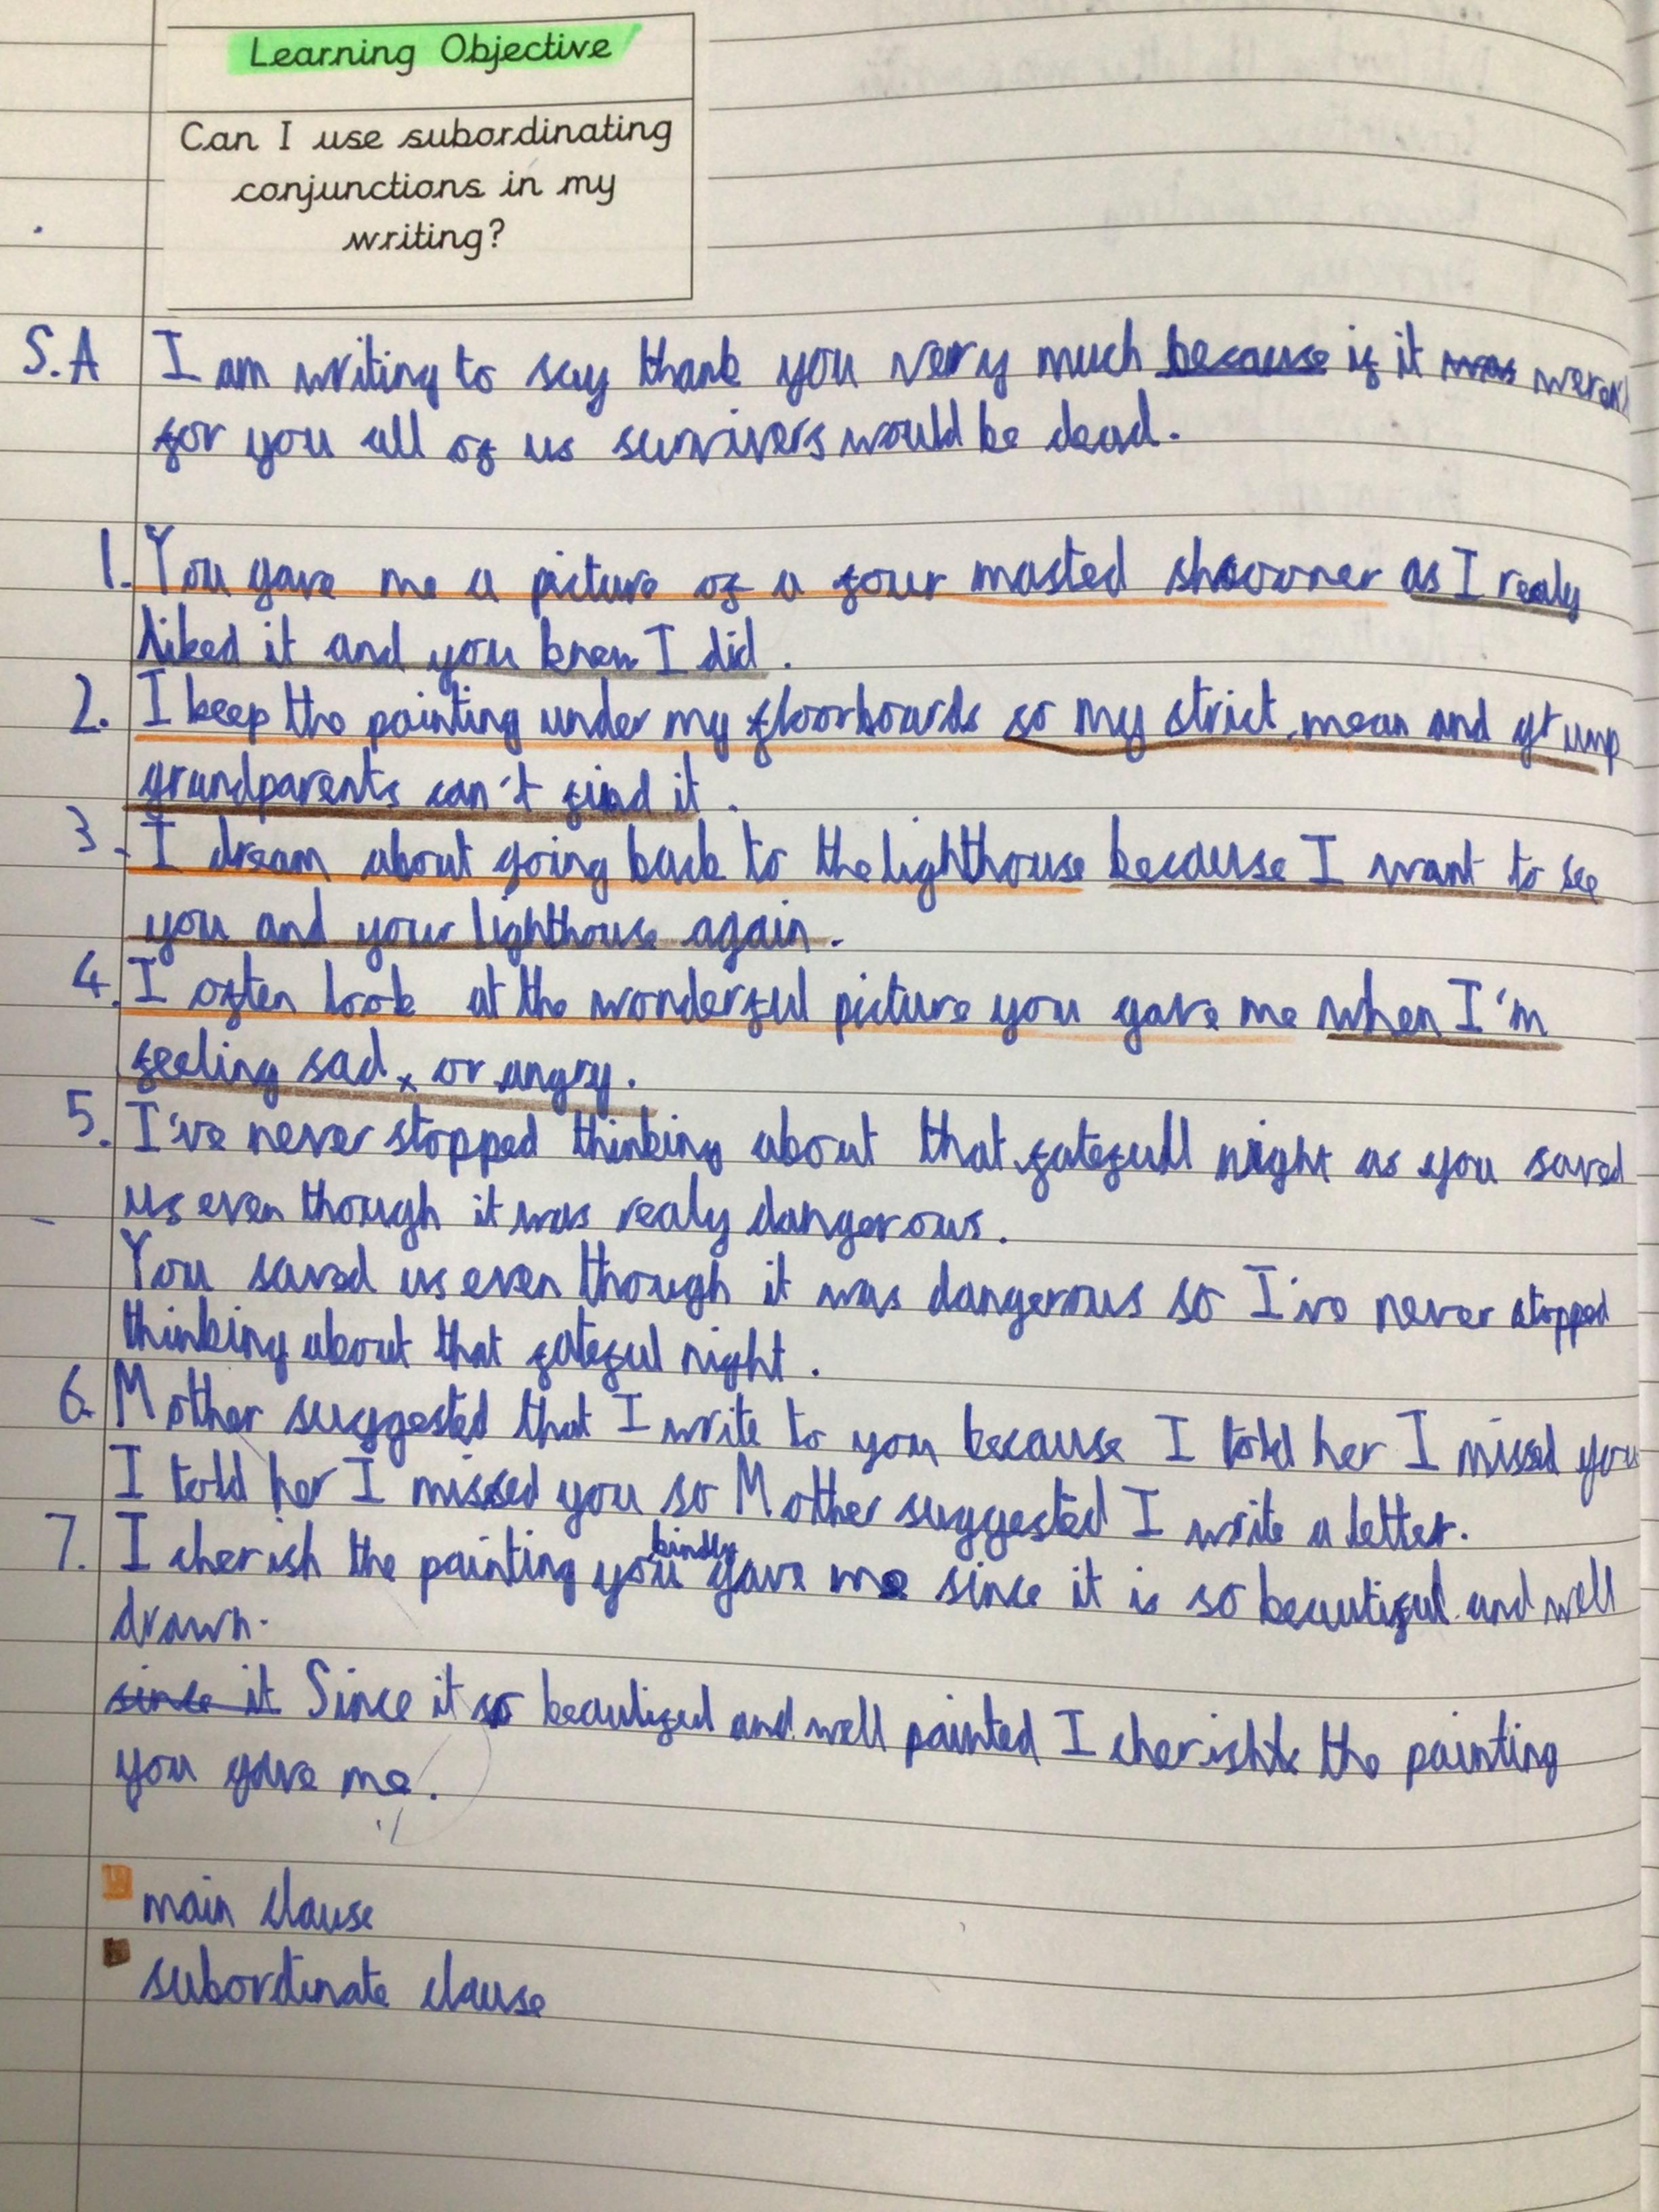 Learning Objective
Can I use subordinating
conjunctions in my
writing?
S.A I am writing to say thank you very much because if it was
for you all of us survivers would be dead.
1. You gave me a picture of a four masted as I realy
liked it and you knew I did.
2. I keep the painting under my floorboards so my strict, mean and
grandparents can't find it.
3. I dream about going back to the lighthouse because I want to see
you and your lighthouse again.
4. I often look at the wonderful picture you gave me when I'm
feeling sad, or angry.
5. I've never stopped thinking about that fatefull night as you saved
us even though it was realy dangerous.
You saved us even though it was dangerous so I've never stopped
thinking about that fateful night.
6. Mother suggested that I write to you because I told her I missed you
I told her I missed you so Mother suggested I write a letter.
kindly
7. I cherish the painting you gave me since it is so beautiful and well
drawn.
since it Since it so beautiful and well painted I the painting
you gave me.
main clause
subordinate clause